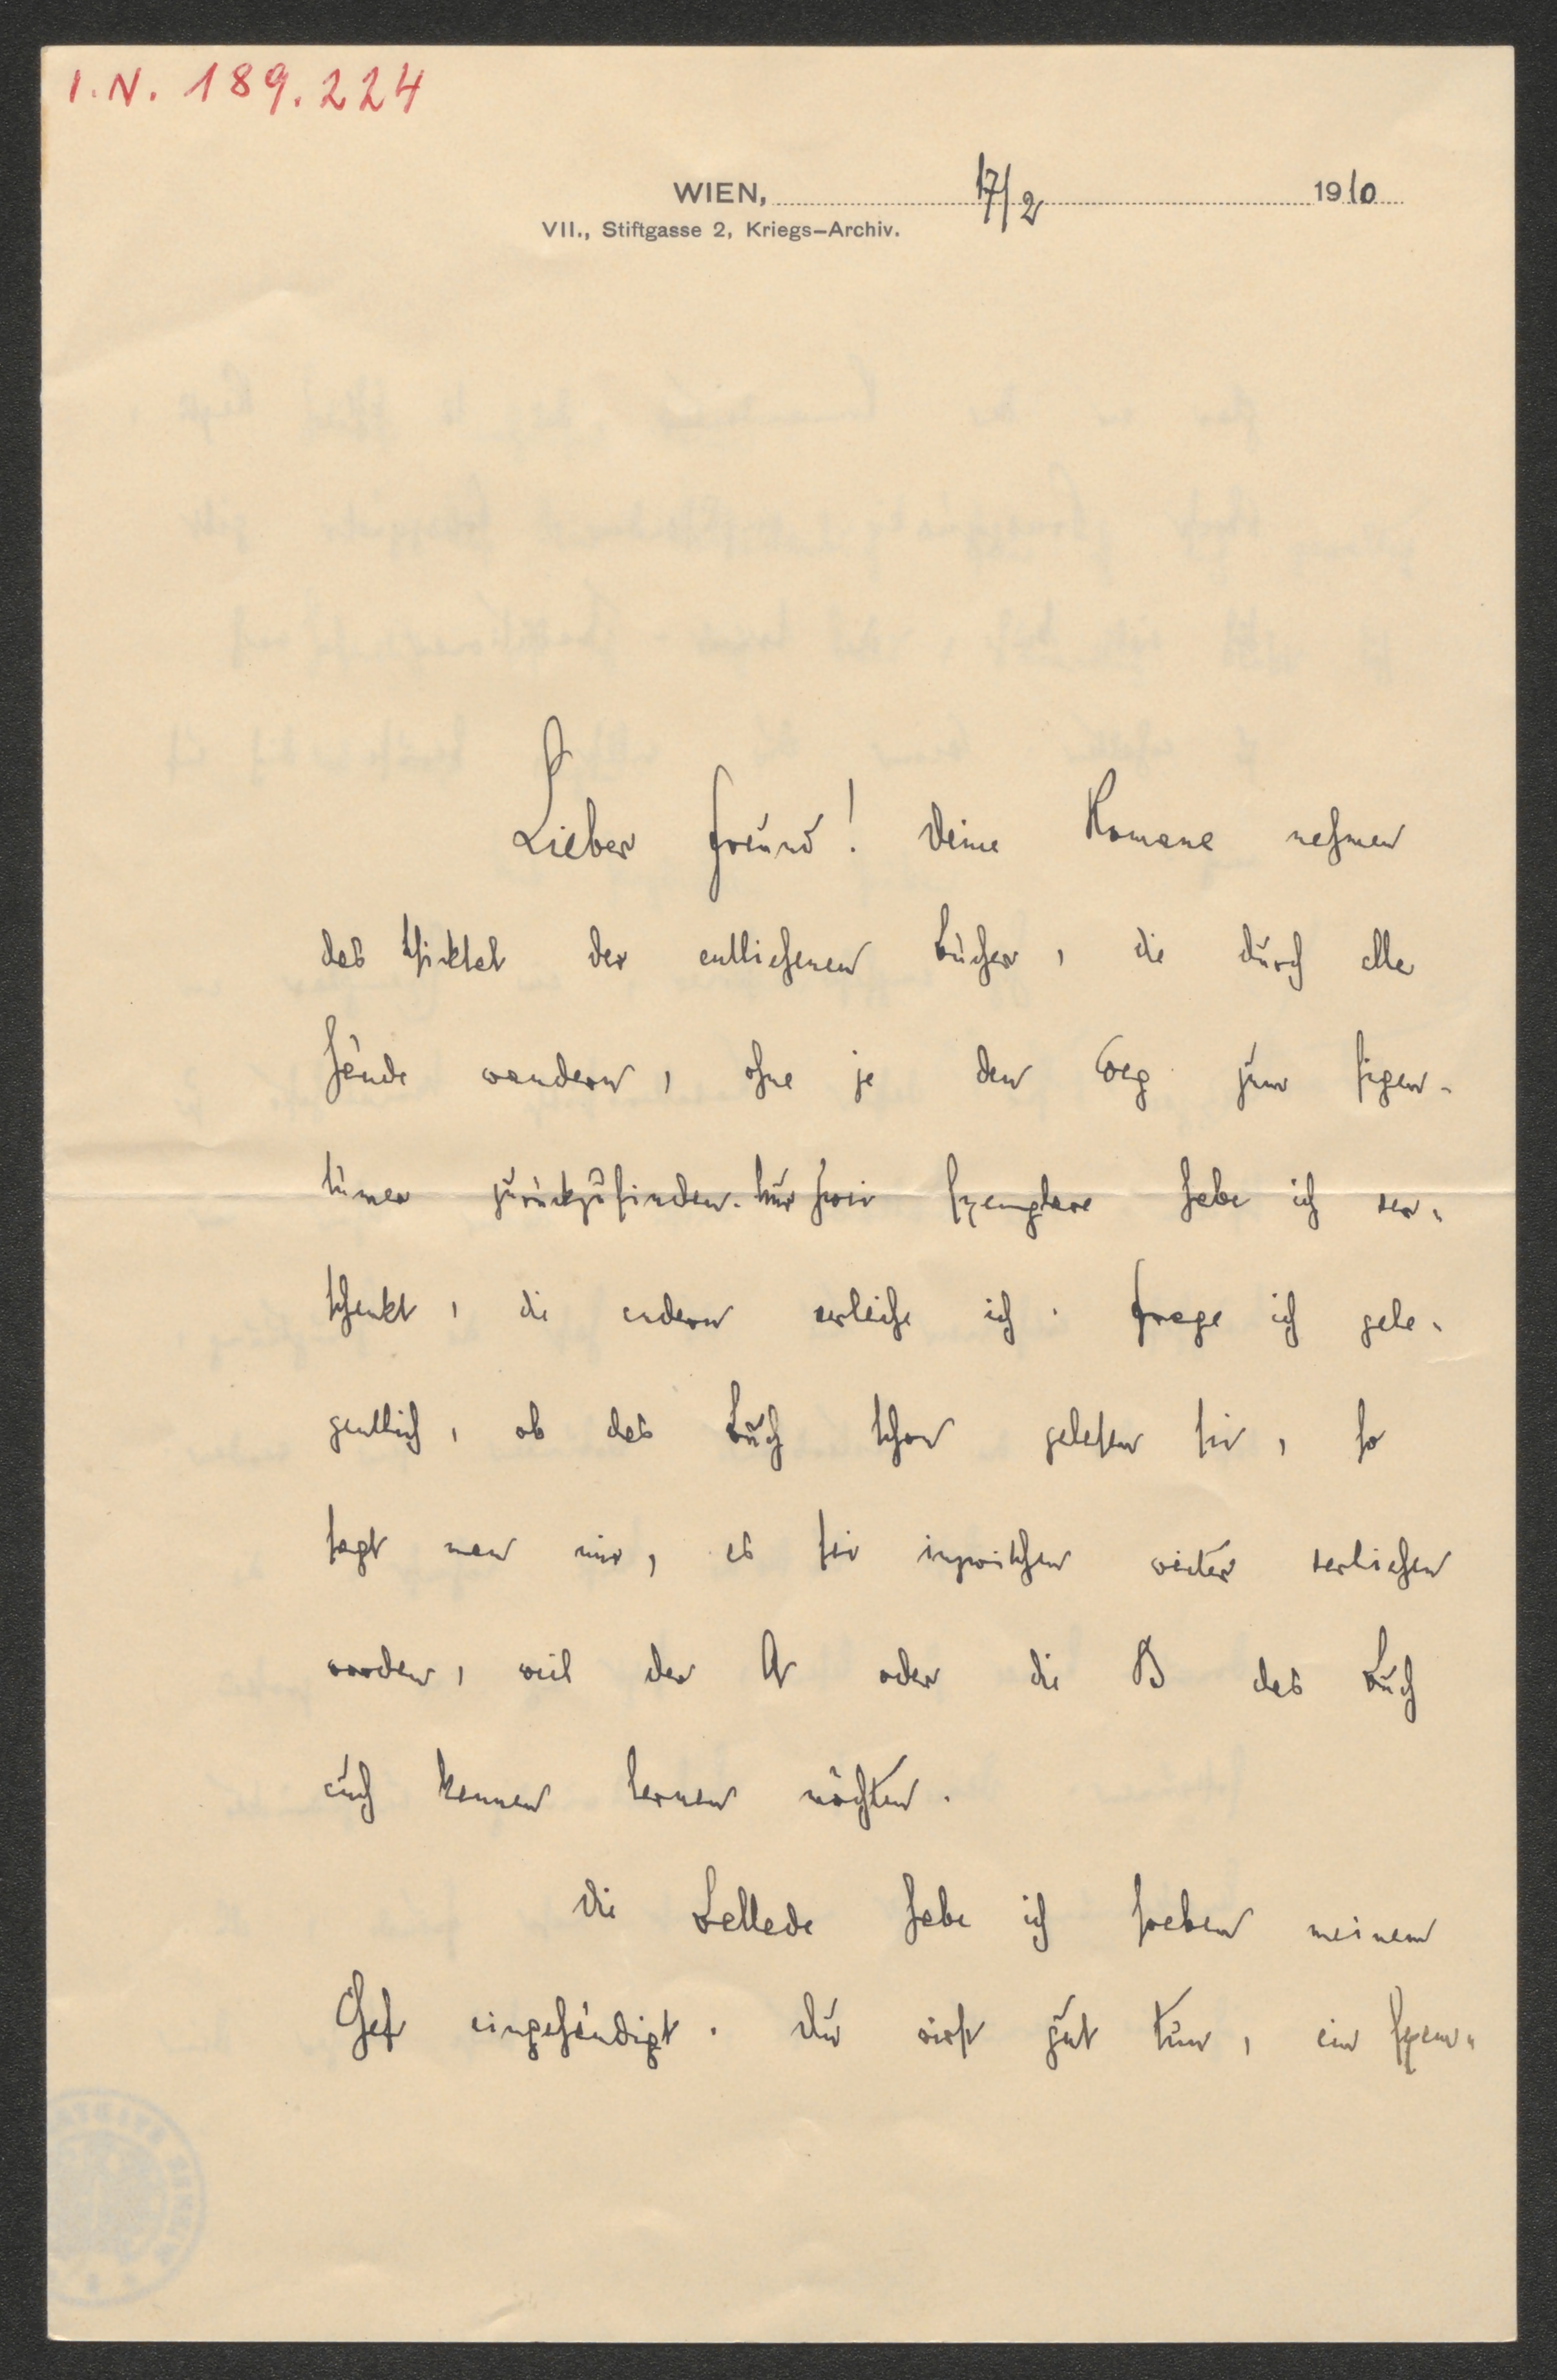 I. N. 189.224
WIEN, 17/2 1910
VII., Stiftgasse 2, Kriegs-Archiv.
Lieber Freund! Deine Romane nehmen
das Schicksal der entliehenen Bücher, die durch alle
Hände wandern, ohne je den Weg zum Eigen-
tümer zurückzufinden. Nur zwei Exemplare habe ich ver-
schenkt, die andern verleihe ich. Frage ich gele-
gentlich, ob das Buch schon gelesen sei, so
sagt man mir, es sei inzwischen weiter verliehen
worden, weil der A oder die B das Buch
auch kennen lernen möchten.
Die Ballade habe ich soeben meinem
Chef eingehändigt. Du wirst gut tun, ein Exem-